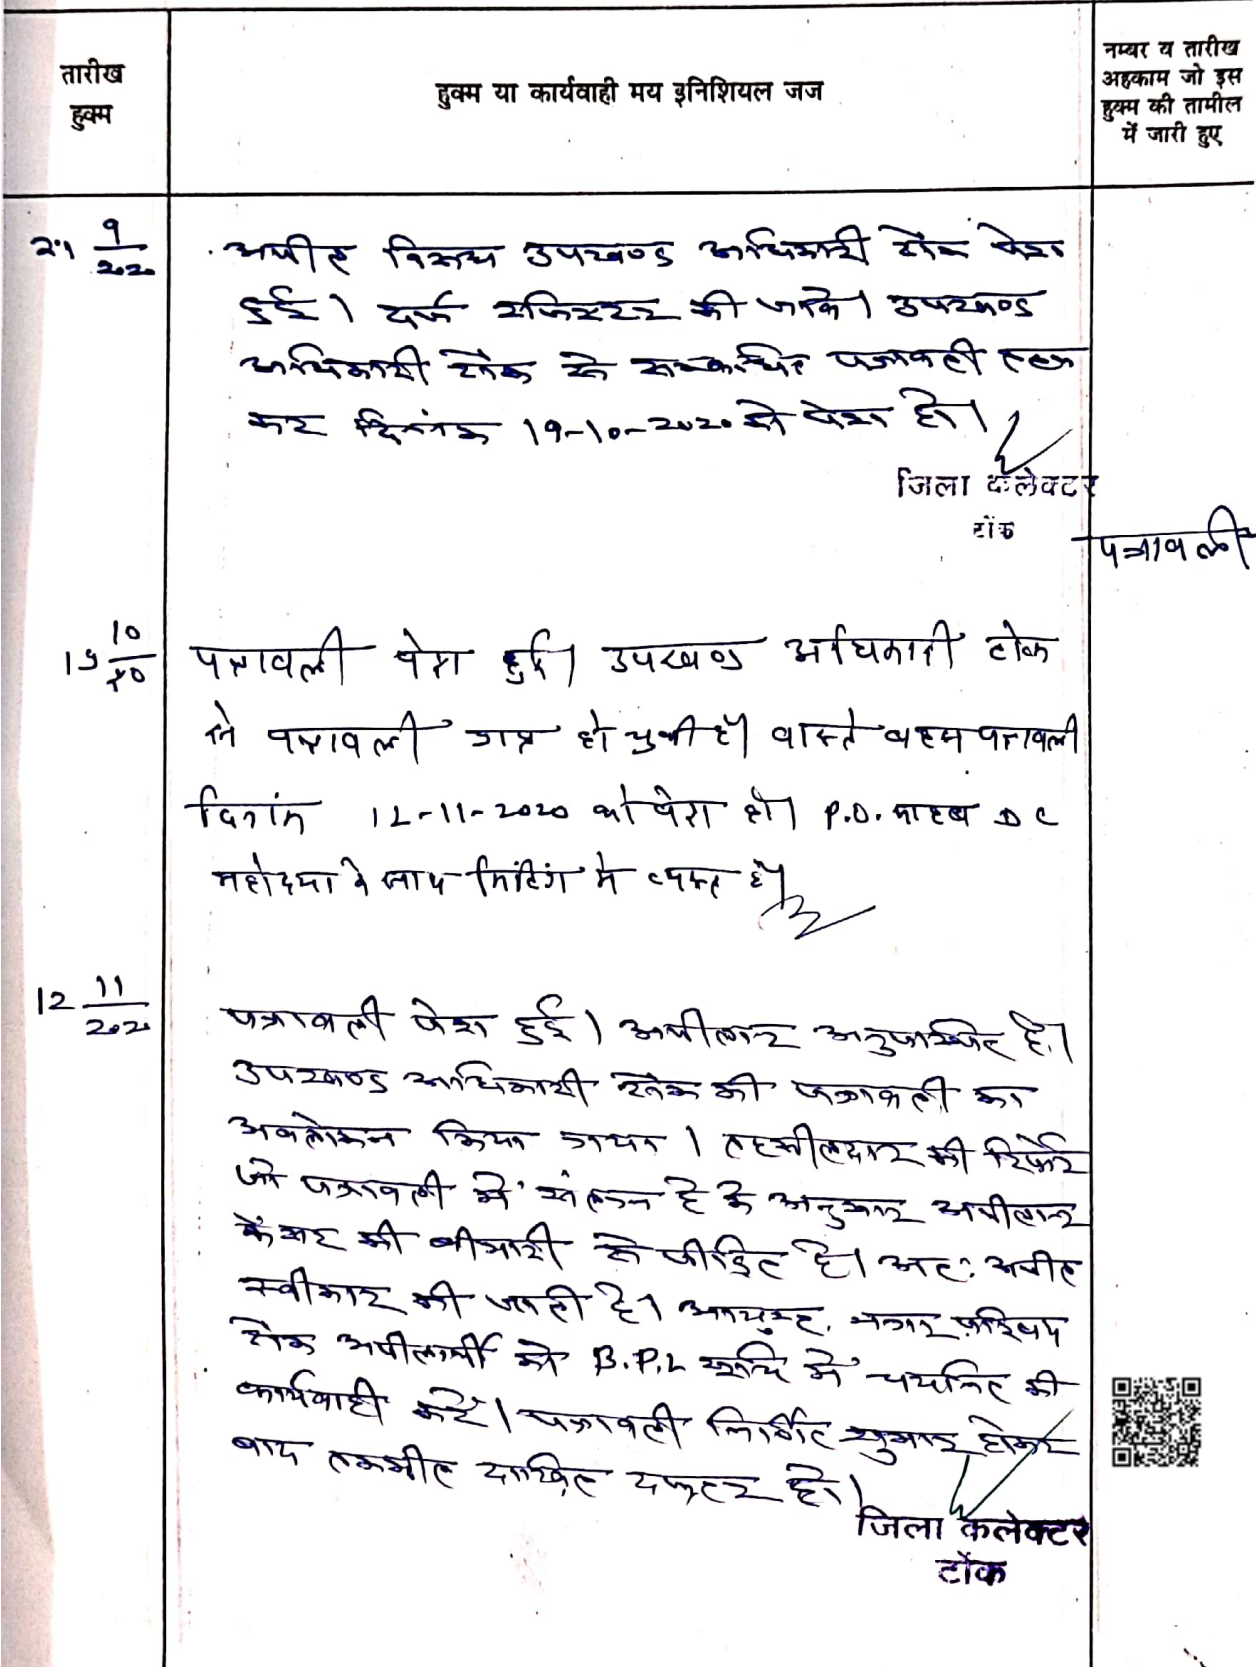 तारीख
हुक्म
हुक्म या कार्यवाही मय इनिशियल जज
नम्बर व तारीख
अहकाम जो इस
हुक्म की तामील
में जारी हुए
21 9/2020
अपील विरूध उपखण्ड अधिकारी टोंक पेश
हुई। दर्ज रजिस्टर की जावे। उपखण्ड
अधिकारी टोंक से सम्बन्धित पत्रावली तलब
कर दिनांक 19-10-2020 को पेश हो।
जिला कलेक्टर
टोंक
पत्रावली
19 10/20
पत्रावली पेश हुई। उपखण्ड अधिकारी टोंक
से पत्रावली प्राप्त हो चुकी है। वास्ते बहस पत्रावली
दिनांक 12-11-2020 को पेश हो। P.O. साहब DC
महोदया के साथ मिटिंग मे व्यस्त है।
12 11/2020
पत्रावली पेश हुई। अपीलान्ट अनुपस्थित है।
उपखण्ड अधिकारी टोंक की पत्रावली का
अवलोकन किया गया। तहसीलदार की रिपोर्ट
जो पत्रावली में संलग्न है के अनुसार अपीलान्ट
कैंसर की बीमारी से पीडित है। अतः अपील
स्वीकार की जाती है। आयुक्त, नगर परिषद
टोंक अपीलार्थी को B.P.L सूची में चयनित की
कार्यवाही करें। पत्रावली निर्णित शुमार होकर
बाद तकमील दाखिल दफ्तर हो।
जिला कलेक्टर
टोंक